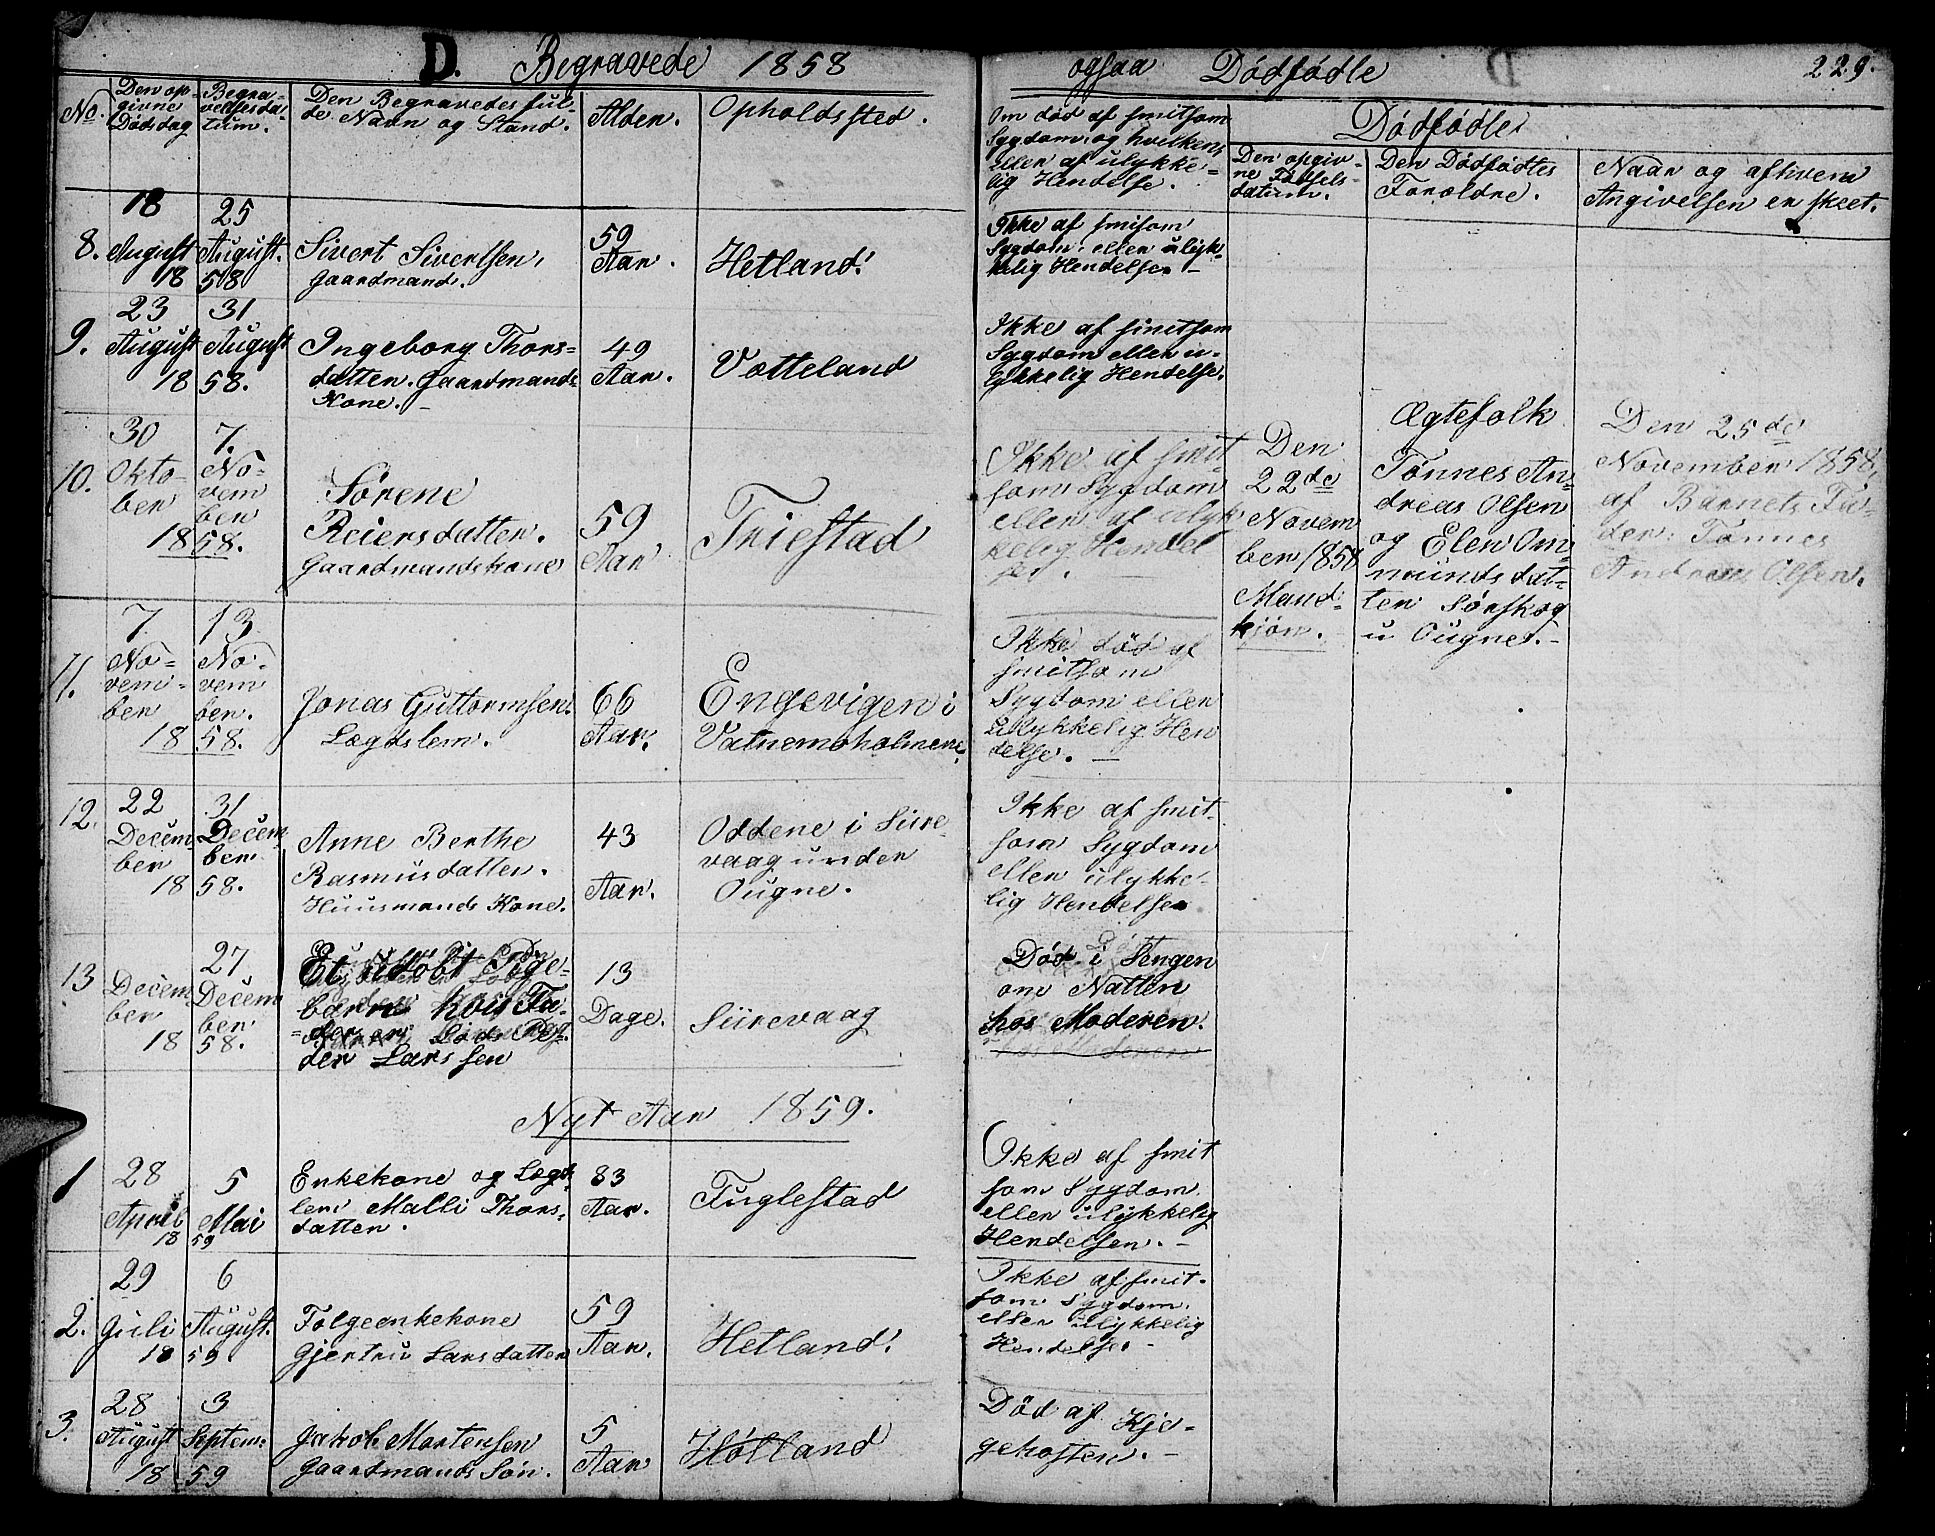 D. Begravede 1858
ogsaa Dödfödte
229.
No.
Den op-
givne
Dödsdag
Begra-
velsesda-
tum.
Den Begravedes ful-
de Navn og Stand.
Alder.
Opholdssted.
Om död af smitsom
Sygdom, og hvilken,
eller af ulykke-
lig Hendelse.
Dödfödte
Den opgiv-
ne Födsels-
datum.
Den Dödfödtes
Forældre.
Naar og af hvem
Angivelsen er skeet.
8.
18
August
18
25
August.
58
Sivert Sivertsen,
Gaardmand.
59
Aar.
Hetland.
Ikke af smisom
Sygdom eller ulyk-
kelig Hendelse. -
9.
23
August
18
31
August
58.
Ingeborg Thors-
datter. Gaardmands
Kone. -
49
Aar.
Votteland
Ikke af smitsom
Sygdom eller u-
lykkelig Hendelse.
10.
30
Okto-
ber
18
7.
No-
vem
ber
58.
Sørene
Reiersdatter.
Gaardmandskone
59
Aar
Friestad
Ikke af smit
som Sygdom
eller af ulyk
kelig Hendel
se. -
Den
22de
Novem
ber 1858
Mand-
kjön.
Ægtefolk
Tönnes An-
dreas Olsen
og Elen Om-
mundsdat-
ter Sörskog
u Ougne. -
Den 25de
November 1858,
af Barnets Fa-
der: Tönnes
Andreas Olsen.
11.
7.
No-
vem-
ber
18
13
No-
vem
ber.
58.
Jonas Guttormsen.
Lægdslem.
66
Aar.
Engevigen i
Vatnemoholmene.
Ikke död af
smitsom
Sygdom eller
ulykkelig Hen
delse. -
12.
22
Decem-
ber
18
31
Decem-
ber
58.
Anne Berthe
Rasmusdatter.
Huusmands Kone.
43
Aar.
Oddene i Sire-
vaag under
Ougne.
Ikke af smit-
som Sygdom
eller ulykke-
lig Hendelse
13
Decem
ber
18
27
Decem
ber
58.
Et udöbt Pige-
barn hvis Fa-
der er Lods Pe-
der Larssen
13
Dage.
Siirevaag
Död i Sengen
om Natten
hos Moderen.
Nyt Aar 1859.
1
28
April
18
5
Mai
59
Enkekone og Lægds
lem Malli Thors-
datter.
83
Aar.
Fuglestad
Ikke af smit
som Sygdom
eller ulykkelig
Hendelsen. -
2.
29
Juli
18
6
August.
59
Folgeenkekone
Gjertru Larsdatter
59
Aar.
Hetland.
Ikke af smit-
som Sygdom.
eller ulykkelig
Hendelse. -
3.
28
August
18
3
Septem-
59
Jakob Mortensen
Gaardmands Sön.
5
Aar
Hölland
Död af Kje-
gehosten. -